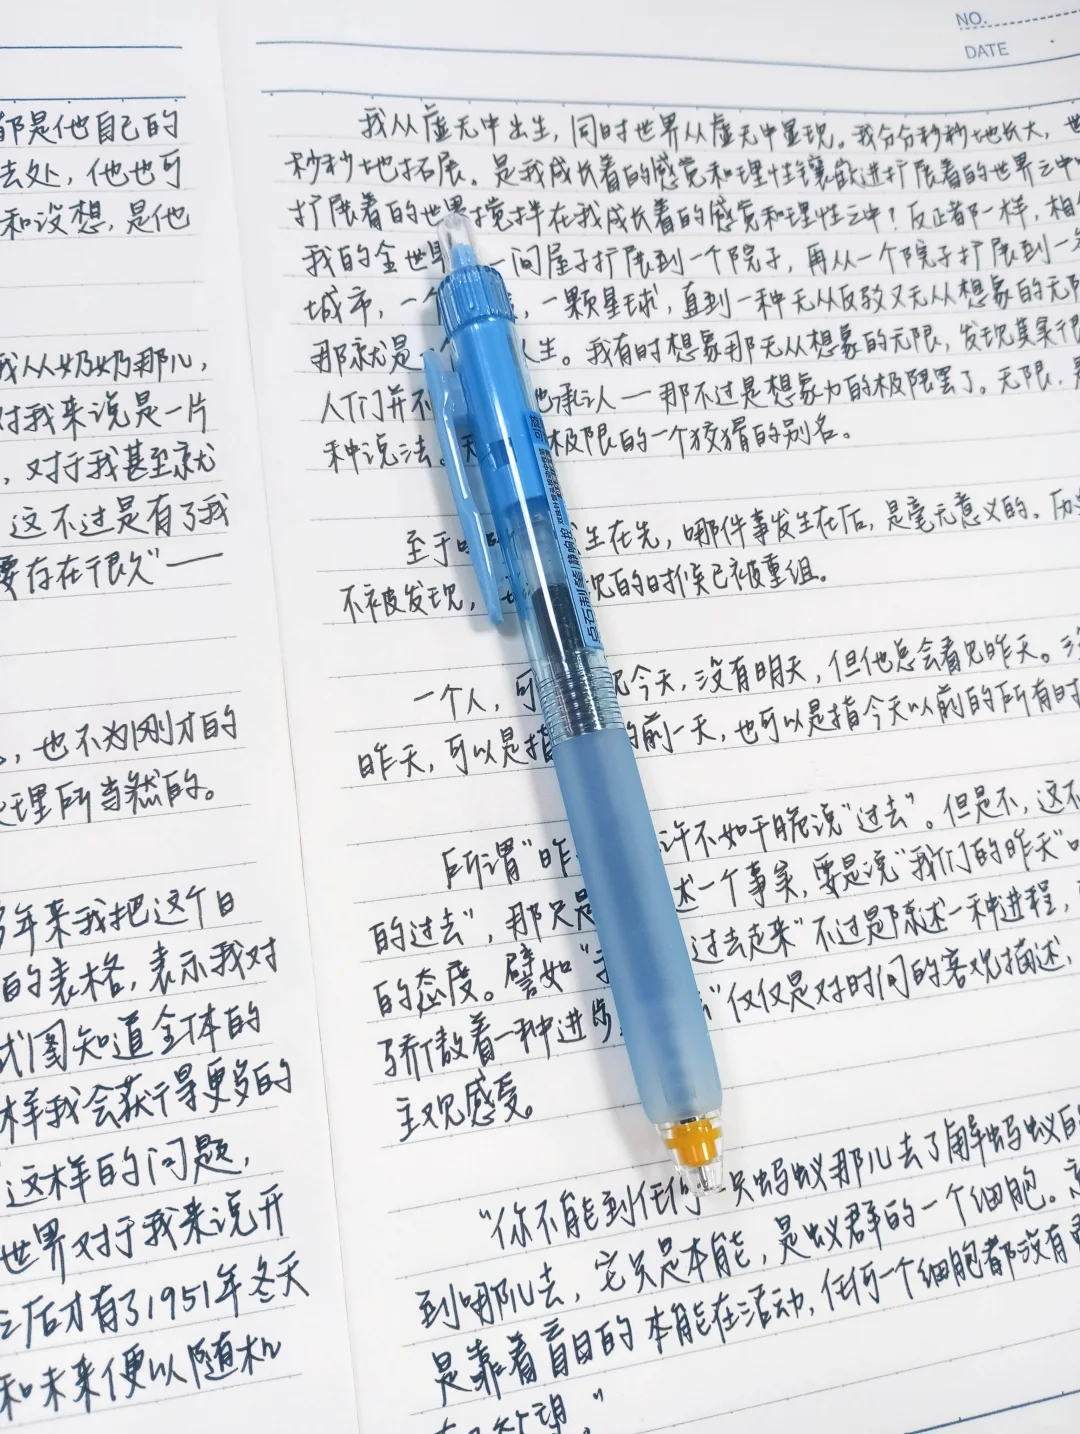 NO.
DATE
都是他自己的
去处，他也可
和设想，是他
我从奶奶那儿，
对我来说是一片
，对于我甚至就
这不过是有了我
要存在很久”——
，也不为刚才的
理所当然的。
多年来我把这个日
的表格，表示我对
试图知道全体的
样我会获得更多的
这样的问题，
世界对于我来说开
之后才有了1951年冬天
和未来便以随机
我从虚无中出生，同时世界从虚无中显现。我分分秒秒地长大，世
秒秒地拓展。是我成长着的感觉和理性镶嵌进扩展着的世界之中
扩展着的世界搅拌在我成长着的感觉和理性之中？反正都一样，相
我的全世界 一间屋子扩展到一个院子，再从一个院子扩展到一
城市，一个 ，一颗星球，直到一种无从反驳又无从想象的无限
那就是一 人生。我有时想象那无从想象的无限，发现其实很
人们并不 也承认——那不过是想象力的极限罢了。无限，
种说法。无 极限的一个狡猾的别名。
至于哪 生在先，哪件事发生在后，是毫无意义的。历史
不被发现， 现的时候已被重组。
一个人，可 记今天，没有明天，但他总会看见昨天。
昨天，可以是指 的前一天，也可以是指今天以前的所有时
所谓“昨 许不如干脆说“过去”。但是不，这不
的过去”，那只是 述一个事实，要是说“我们的昨天”
的态度。譬如“ 过去起来”不过是陈述一种进程，
骄傲着一种进步 “仅仅是对时间的客观描述，
主观感受。
“你不能到任何一只蚂蚁那儿去了解蚂蚁的
到哪儿去，它只是本能，是蚁群的一个细胞。
是靠着盲目的本能在活动，任何一个细胞都没有
”
点石制笔 静响按